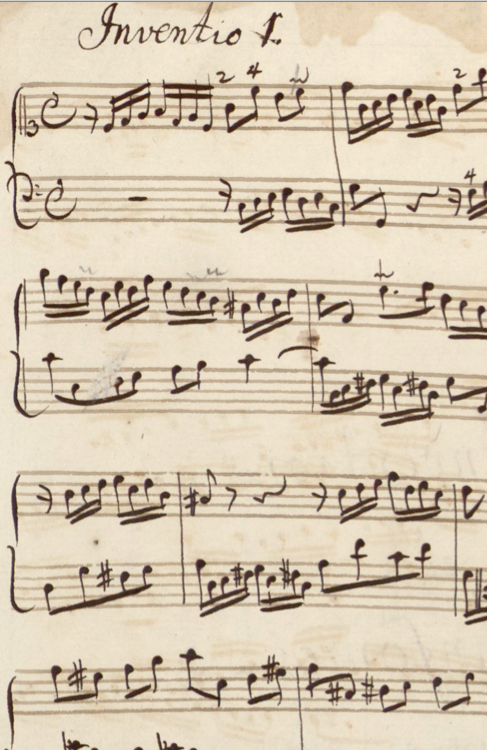 Inventio 1.
2 4
2
4